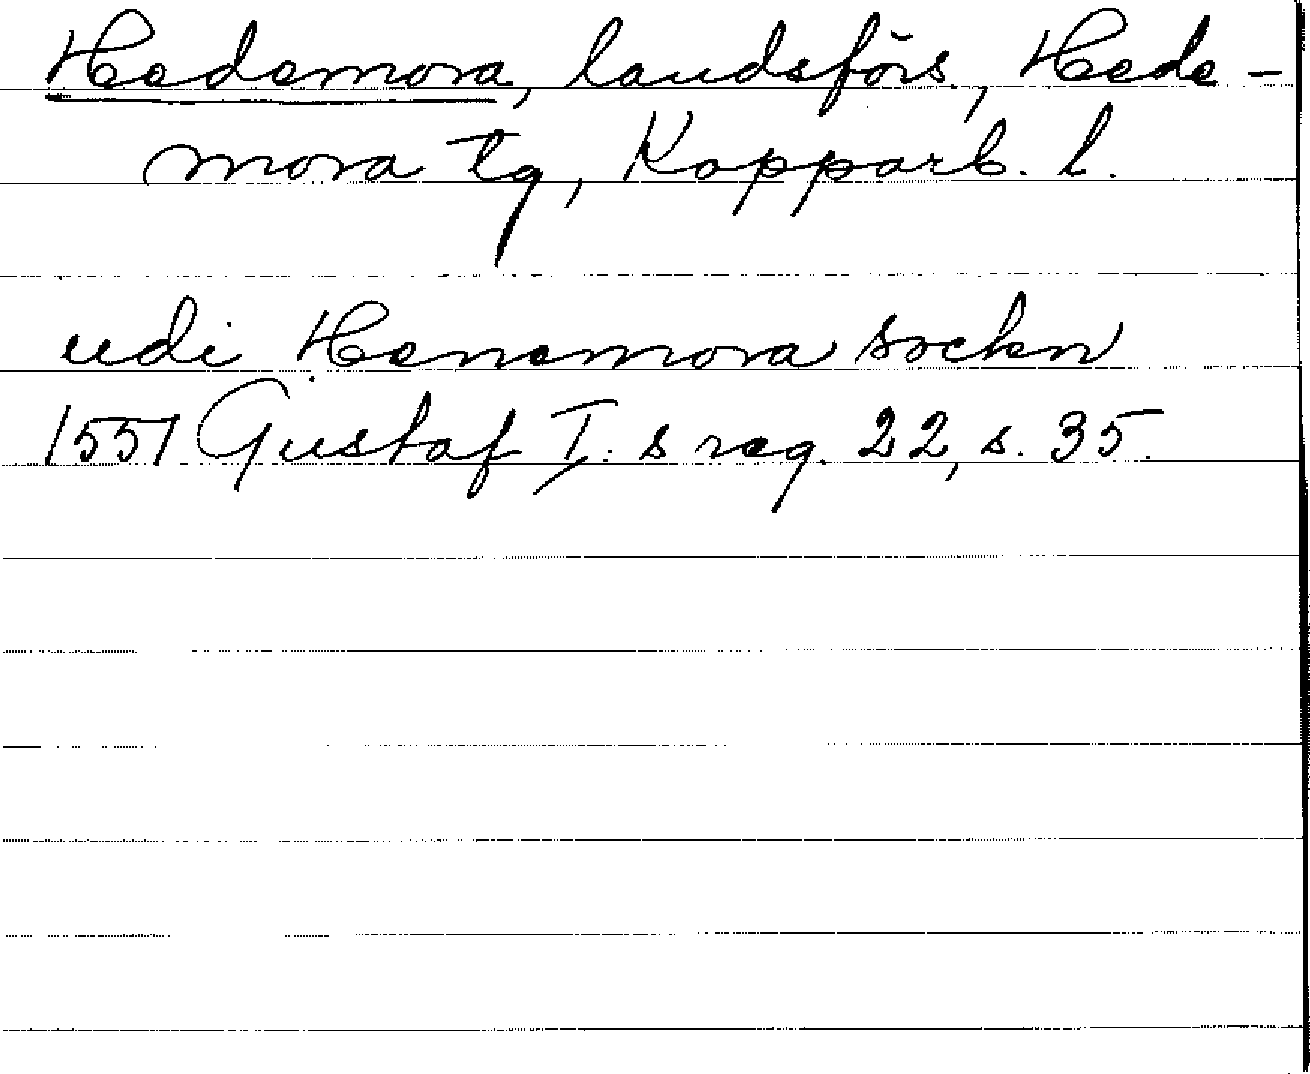 Hedemora, landsförs, Hede-
mora tg, Kopparb. l.
udi Henemora sockn
1551 Gustaf I: s reg. 22, s. 35.